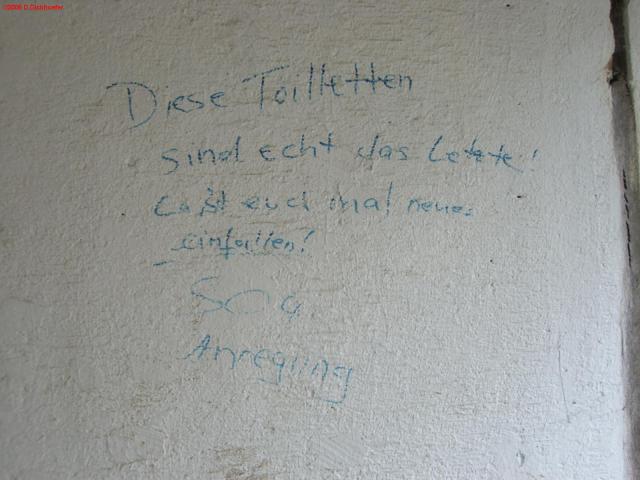 ©2006 D.Gischhoefer
Diese Toilletten
sind echt das Letzte!
Laßt euch mal neues
einfallen!
SOG
Anregung